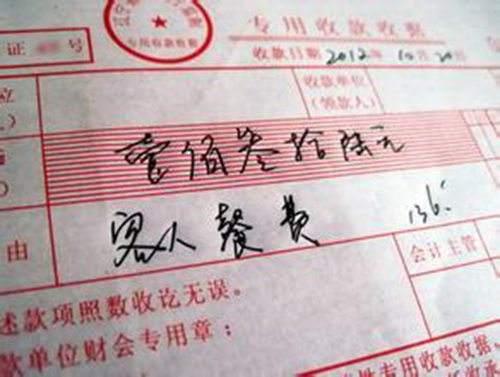 专用收款收据
证 号
收款日期 2012年 10月 20日
收款单位
(领款人)
壹佰叁拾陆元
由 客人餐费 136.
会计主管
述款项照数收讫无误。
款单位财会专用章:
性专用收款收据、